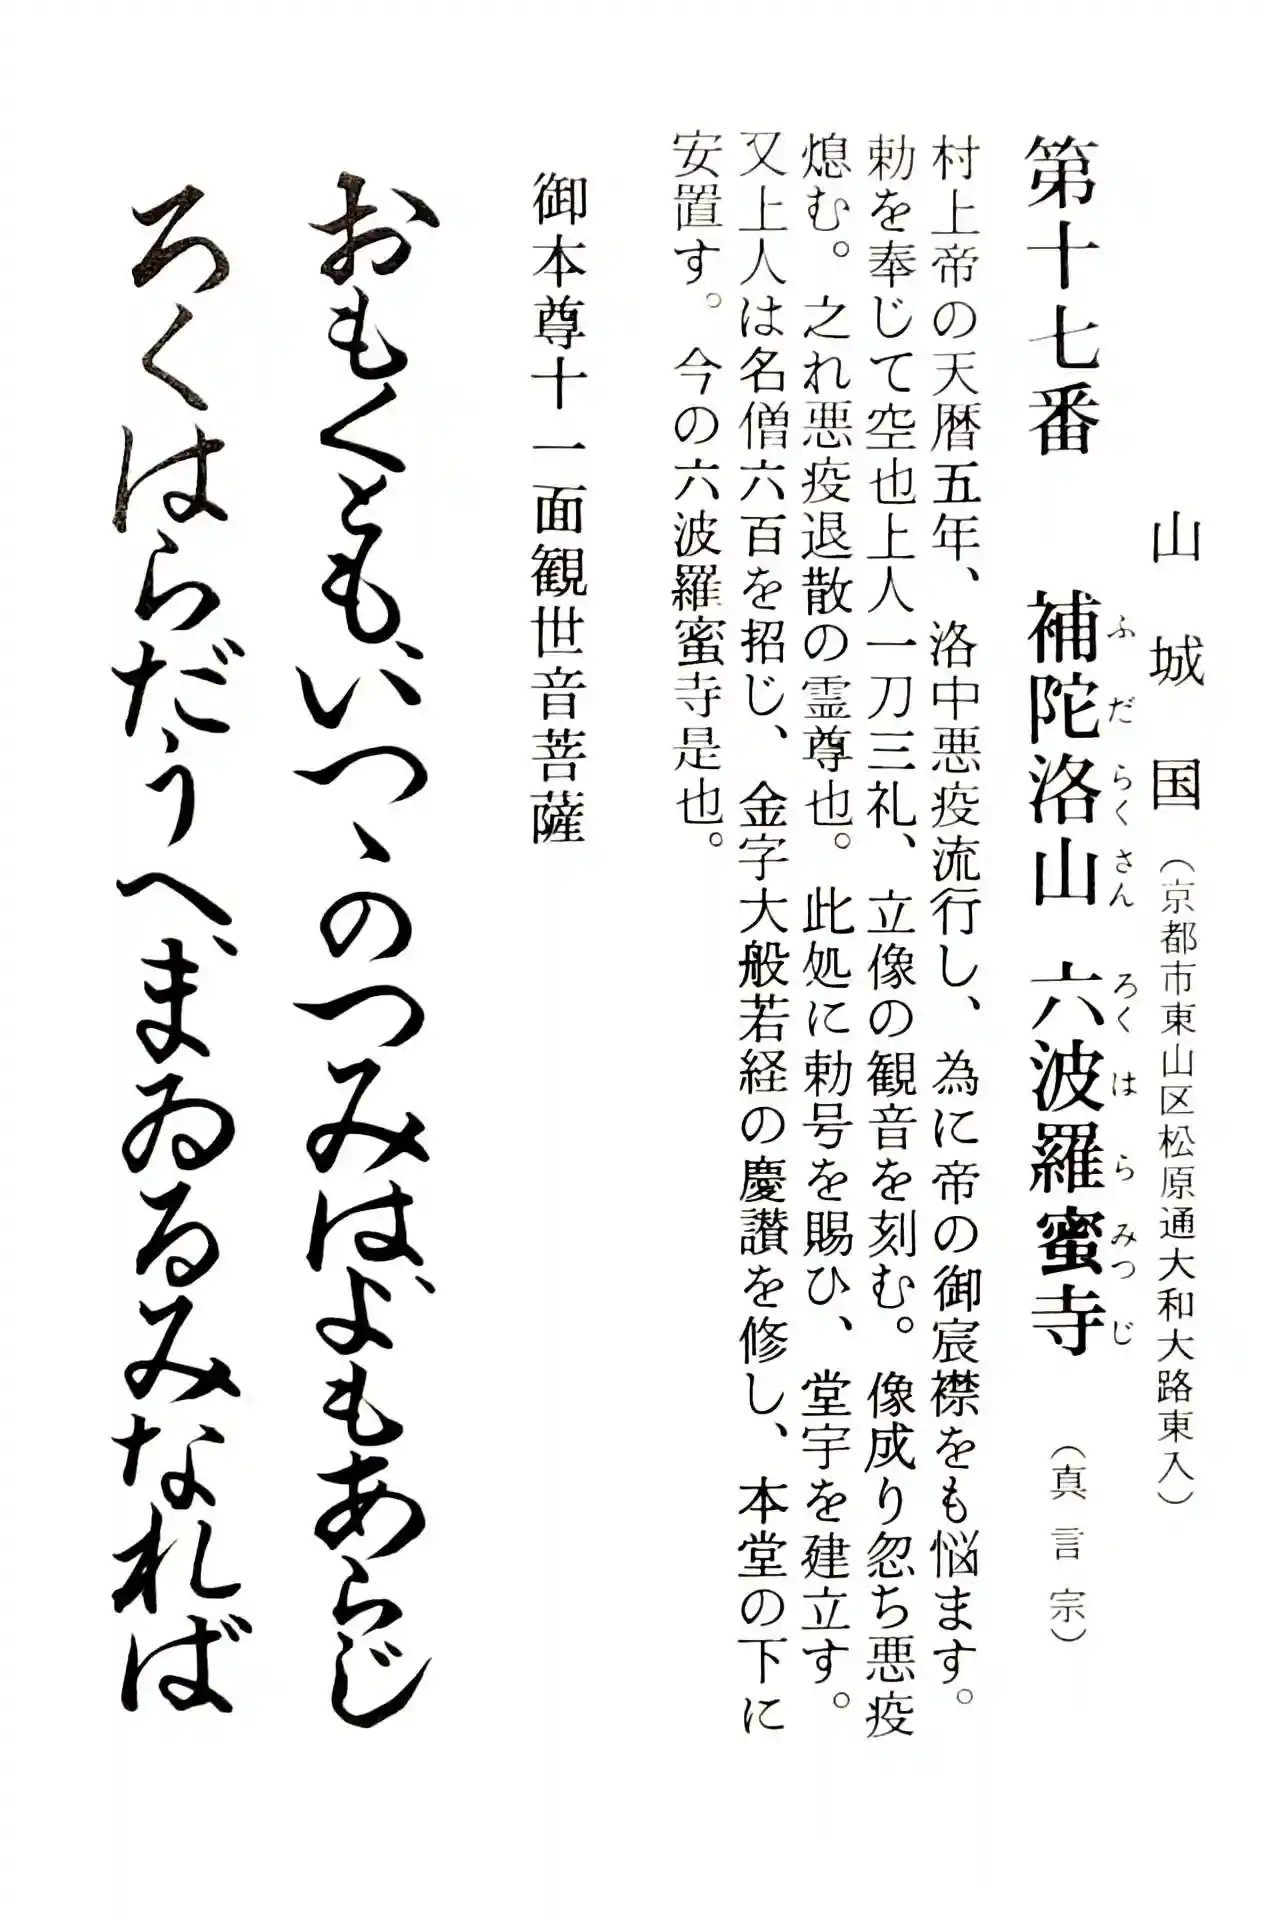 山城国（京都市東山区松原通大和大路東入）
第十七番 補陀洛山 六波羅蜜寺（真言宗）
ふだらくさん ろくはらみつじ
村上帝の天暦五年、洛中悪疫流行し、為に帝の御宸襟をも悩ます。
勅を奉じて空也上人一刀三礼、立像の観音を刻む。像成り忽ち悪疫
熄む。之れ悪疫退散の霊尊也。此処に勅号を賜ひ、堂宇を建立す。
又上人は名僧六百を招じ、金字大般若経の慶讃を修し、本堂の下に
安置す。今の六波羅蜜寺是也。
御本尊十一面観世音菩薩
おもくとも、いつゝのつみは、よもあらじ
ろくはらだうへ、まゐるみなれば